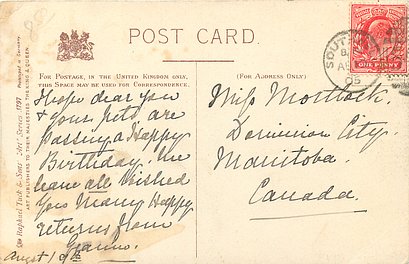 POST CARD.
FOR POSTAGE, IN THE UNITED KINGDOM ONLY,
THIS SPACE MAY BE USED FOR CORRESPONDENCE.
(FOR ADDRESS ONLY.)
Hope dear you
& your pets are
passing a Happy
Birthday. We
have all wished
you Many Happy
returns from
Augt
Miss Mortlock.
Dominion City.
Manitoba.
Canada.
ONE PENNY
SOUTH
05
Raphael Tuck & Sons' "Art" Series 1797
ART PUBLISHERS TO THEIR MAJESTIES THE KING & QUEEN.